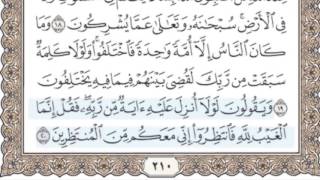 فِي ٱلۡأَرۡضِۚ سُبۡحَٰنَهُۥ وَتَعَٰلَىٰ عَمَّا يُشۡرِكُونَ ١٨ وَمَا
كَانَ ٱلنَّاسُ إِلَّآ أُمَّةٗ وَٰحِدَةٗ فَٱخۡتَلَفُواْۚ وَلَوۡلَا كَلِمَةٞ
سَبَقَتۡ مِن رَّبِّكَ لَقُضِيَ بَيۡنَهُمۡ فِيمَا فِيهِ يَخۡتَلِفُونَ
١٩ وَيَقُولُونَ لَوۡلَآ أُنزِلَ عَلَيۡهِ ءَايَةٞ مِّن رَّبِّهِۦۖ فَقُلۡ إِنَّمَا
ٱلۡغَيۡبُ لِلَّهِ فَٱنتَظِرُوٓاْ إِنِّي مَعَكُم مِّنَ ٱلۡمُنتَظِرِينَ ٢٠
٢١٠